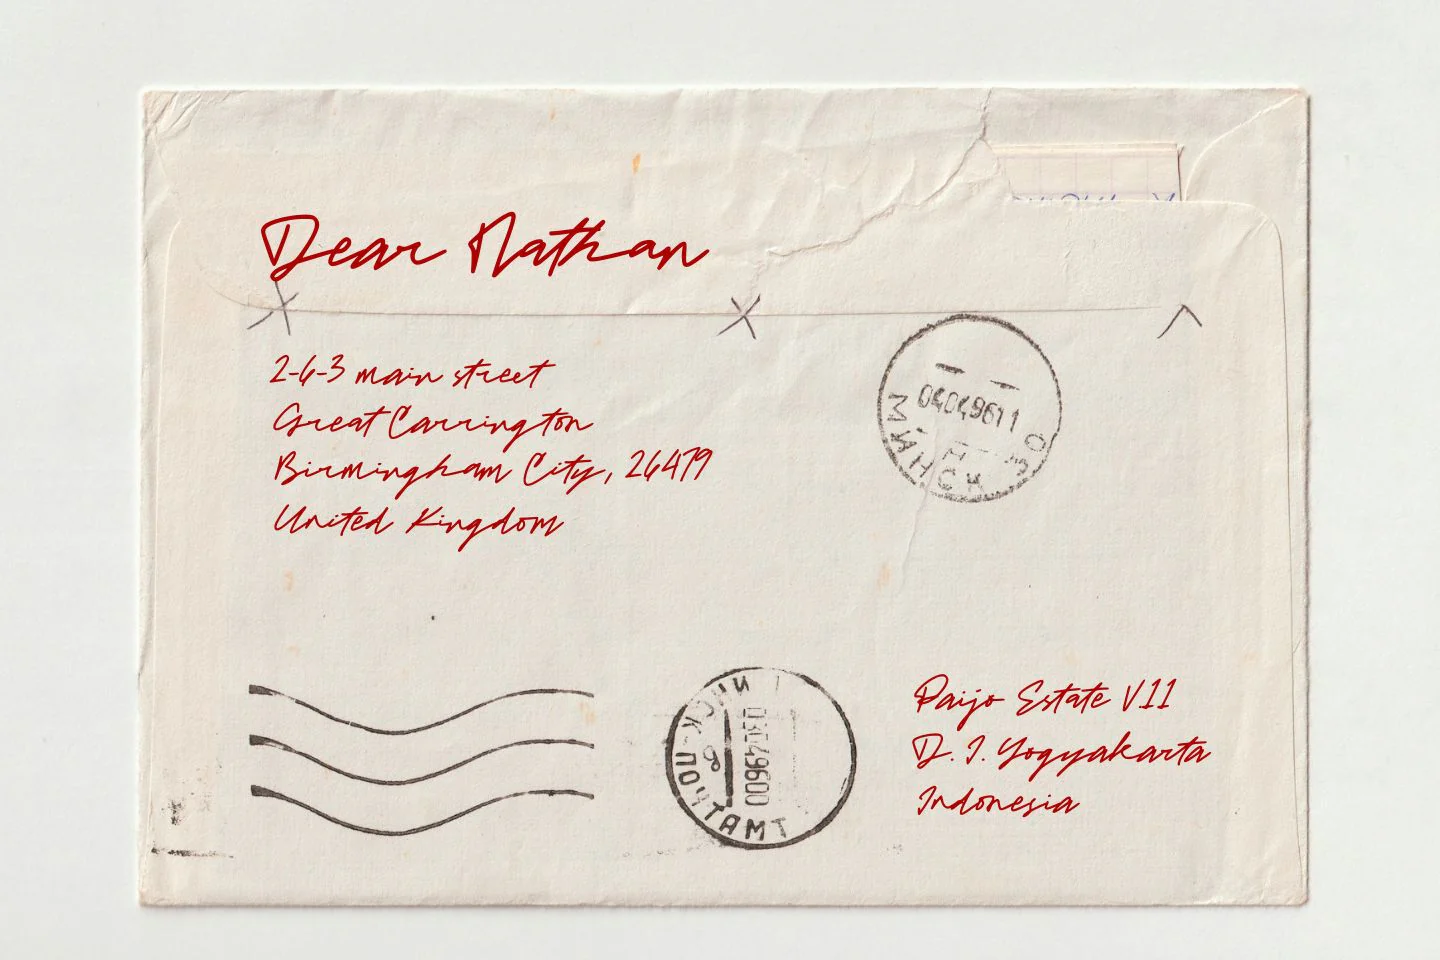 Dear Nathan
2-6-3 main street
Great Carrington
Birmingham City, 26479
United Kingdom
04049611
МИНСК
ПОЧТАМТ
Paijo Estate VII
D. I. Yogyakarta
Indonesia